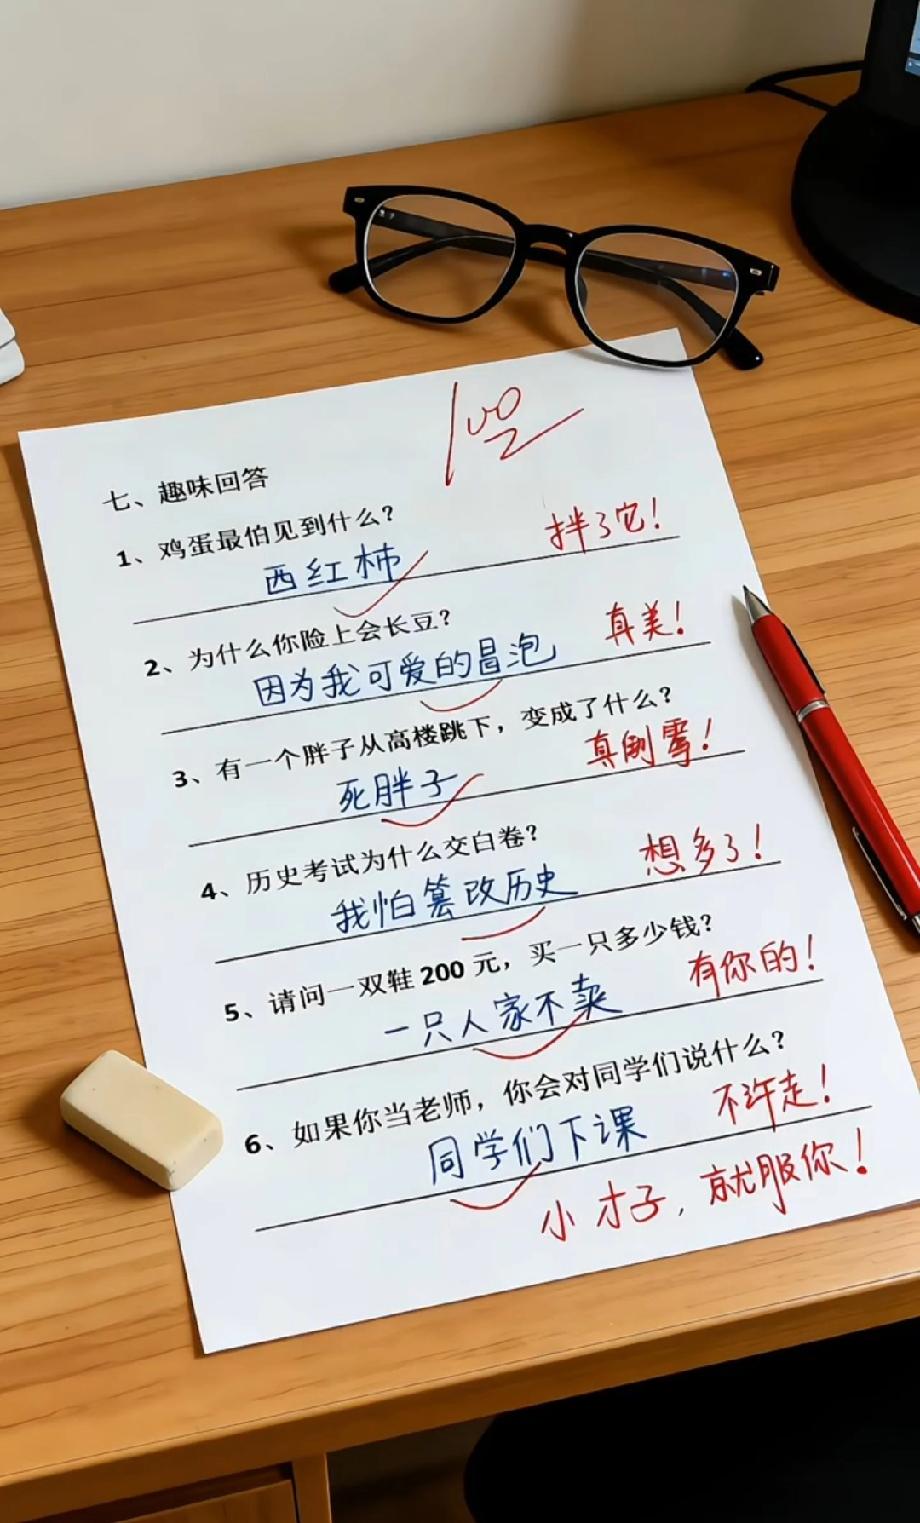 100
七、趣味回答
1、鸡蛋最怕见到什么？
西红柿
拌了它！
2、为什么你脸上会长豆？
因为我可爱的冒泡
真美！
3、有一个胖子从高楼跳下，变成了什么？
死胖子
真倒霉！
4、历史考试为什么交白卷？
我怕篡改历史
想多了！
5、请问一双鞋 200 元，买一只多少钱？
一只人家不卖
有你的！
6、如果你当老师，你会对同学们说什么？
同学们下课
不许走！
小才子，就服你！